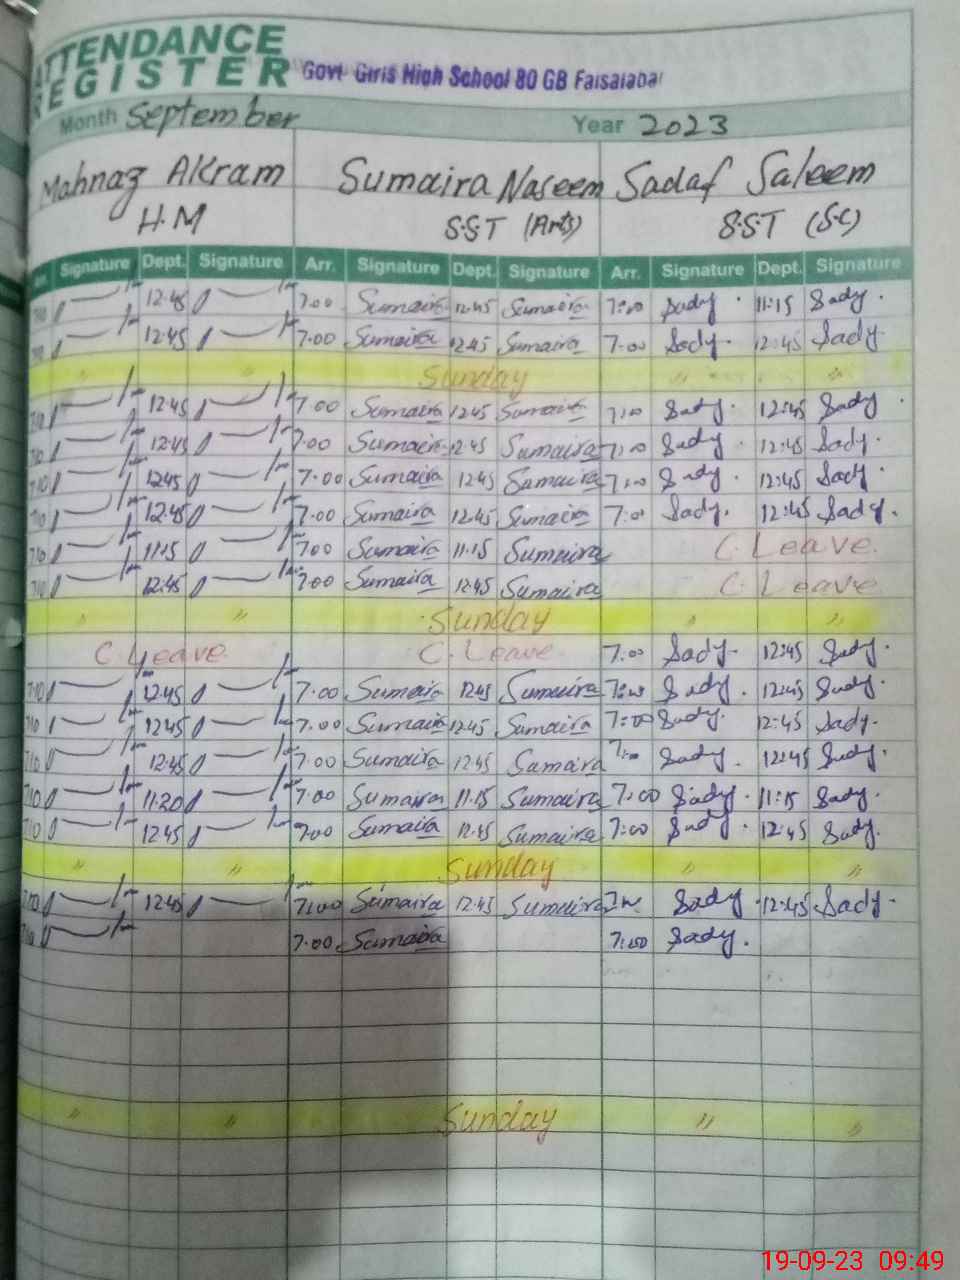 ATTENDANCE
REGISTER Govt Girls High School 80 GB Faisalabad
Month September Year 2023
Mahnaz Akram Sumaira Naseem Sadaf Saleem
H.M S.S.T (Arts) S.S.T (S.C)
Signature Dept. Signature Arr. Signature Dept. Signature Arr. Signature Dept. Signature
12.45 7.00 Sumaira 12.45 Sumaira 7:00 Sady. 11:15 Sady.
12.45 7.00 Sumaira 12.45 Sumaira 7.00 Sady. 12:45 Sady.
" " Sunday " "
12.45 7.00 Sumaira 12.45 Sumaira 7:00 Sady. 12:45 Sady.
12.45 7.00 Sumaira 12.45 Sumaira 7:00 Sady. 12:45 Sady.
7.10 12.45 7.00 Sumaira 12.45 Sumaira 7:00 Sady. 12:45 Sady
7.10 12.45 7.00 Sumaira 12.45 Sumaira 7:00 Sady. 12:45 Sady.
7.10 11.15 7.00 Sumaira 11.15 Sumaira C. Leave.
7.10 12.45 7.00 Sumaira 12.45 Sumaira C. Leave
" " Sunday " "
C. Leave. C. Leave 7.00 Sady. 12:45 Sady.
7.10 12.45 7.00 Sumaira 12.45 Sumaira 7:00 Sady. 12:45 Sady.
7.10 12.45 7.00 Sumaira 12.45 Sumaira 7:00 Sady. 12:45 Sady.
7.10 12.45 7.00 Sumaira 12.45 Sumaira 7:00 Sady. 12:45 Sady.
7.10 11.20 7.00 Sumaira 11.15 Sumaira 7:00 Sady. 11:15 Sady.
7.10 12.45 7.00 Sumaira 12.45 Sumaira 7:00 Sady. 12:45 Sady.
" " Sunday " "
7.10 12.45 7.00 Sumaira 12.45 Sumaira 7:00 Sady. 12:45 Sady.
7.00 Sumaira 7:00 Sady.
" " Sunday " "
19-09-23 09:49